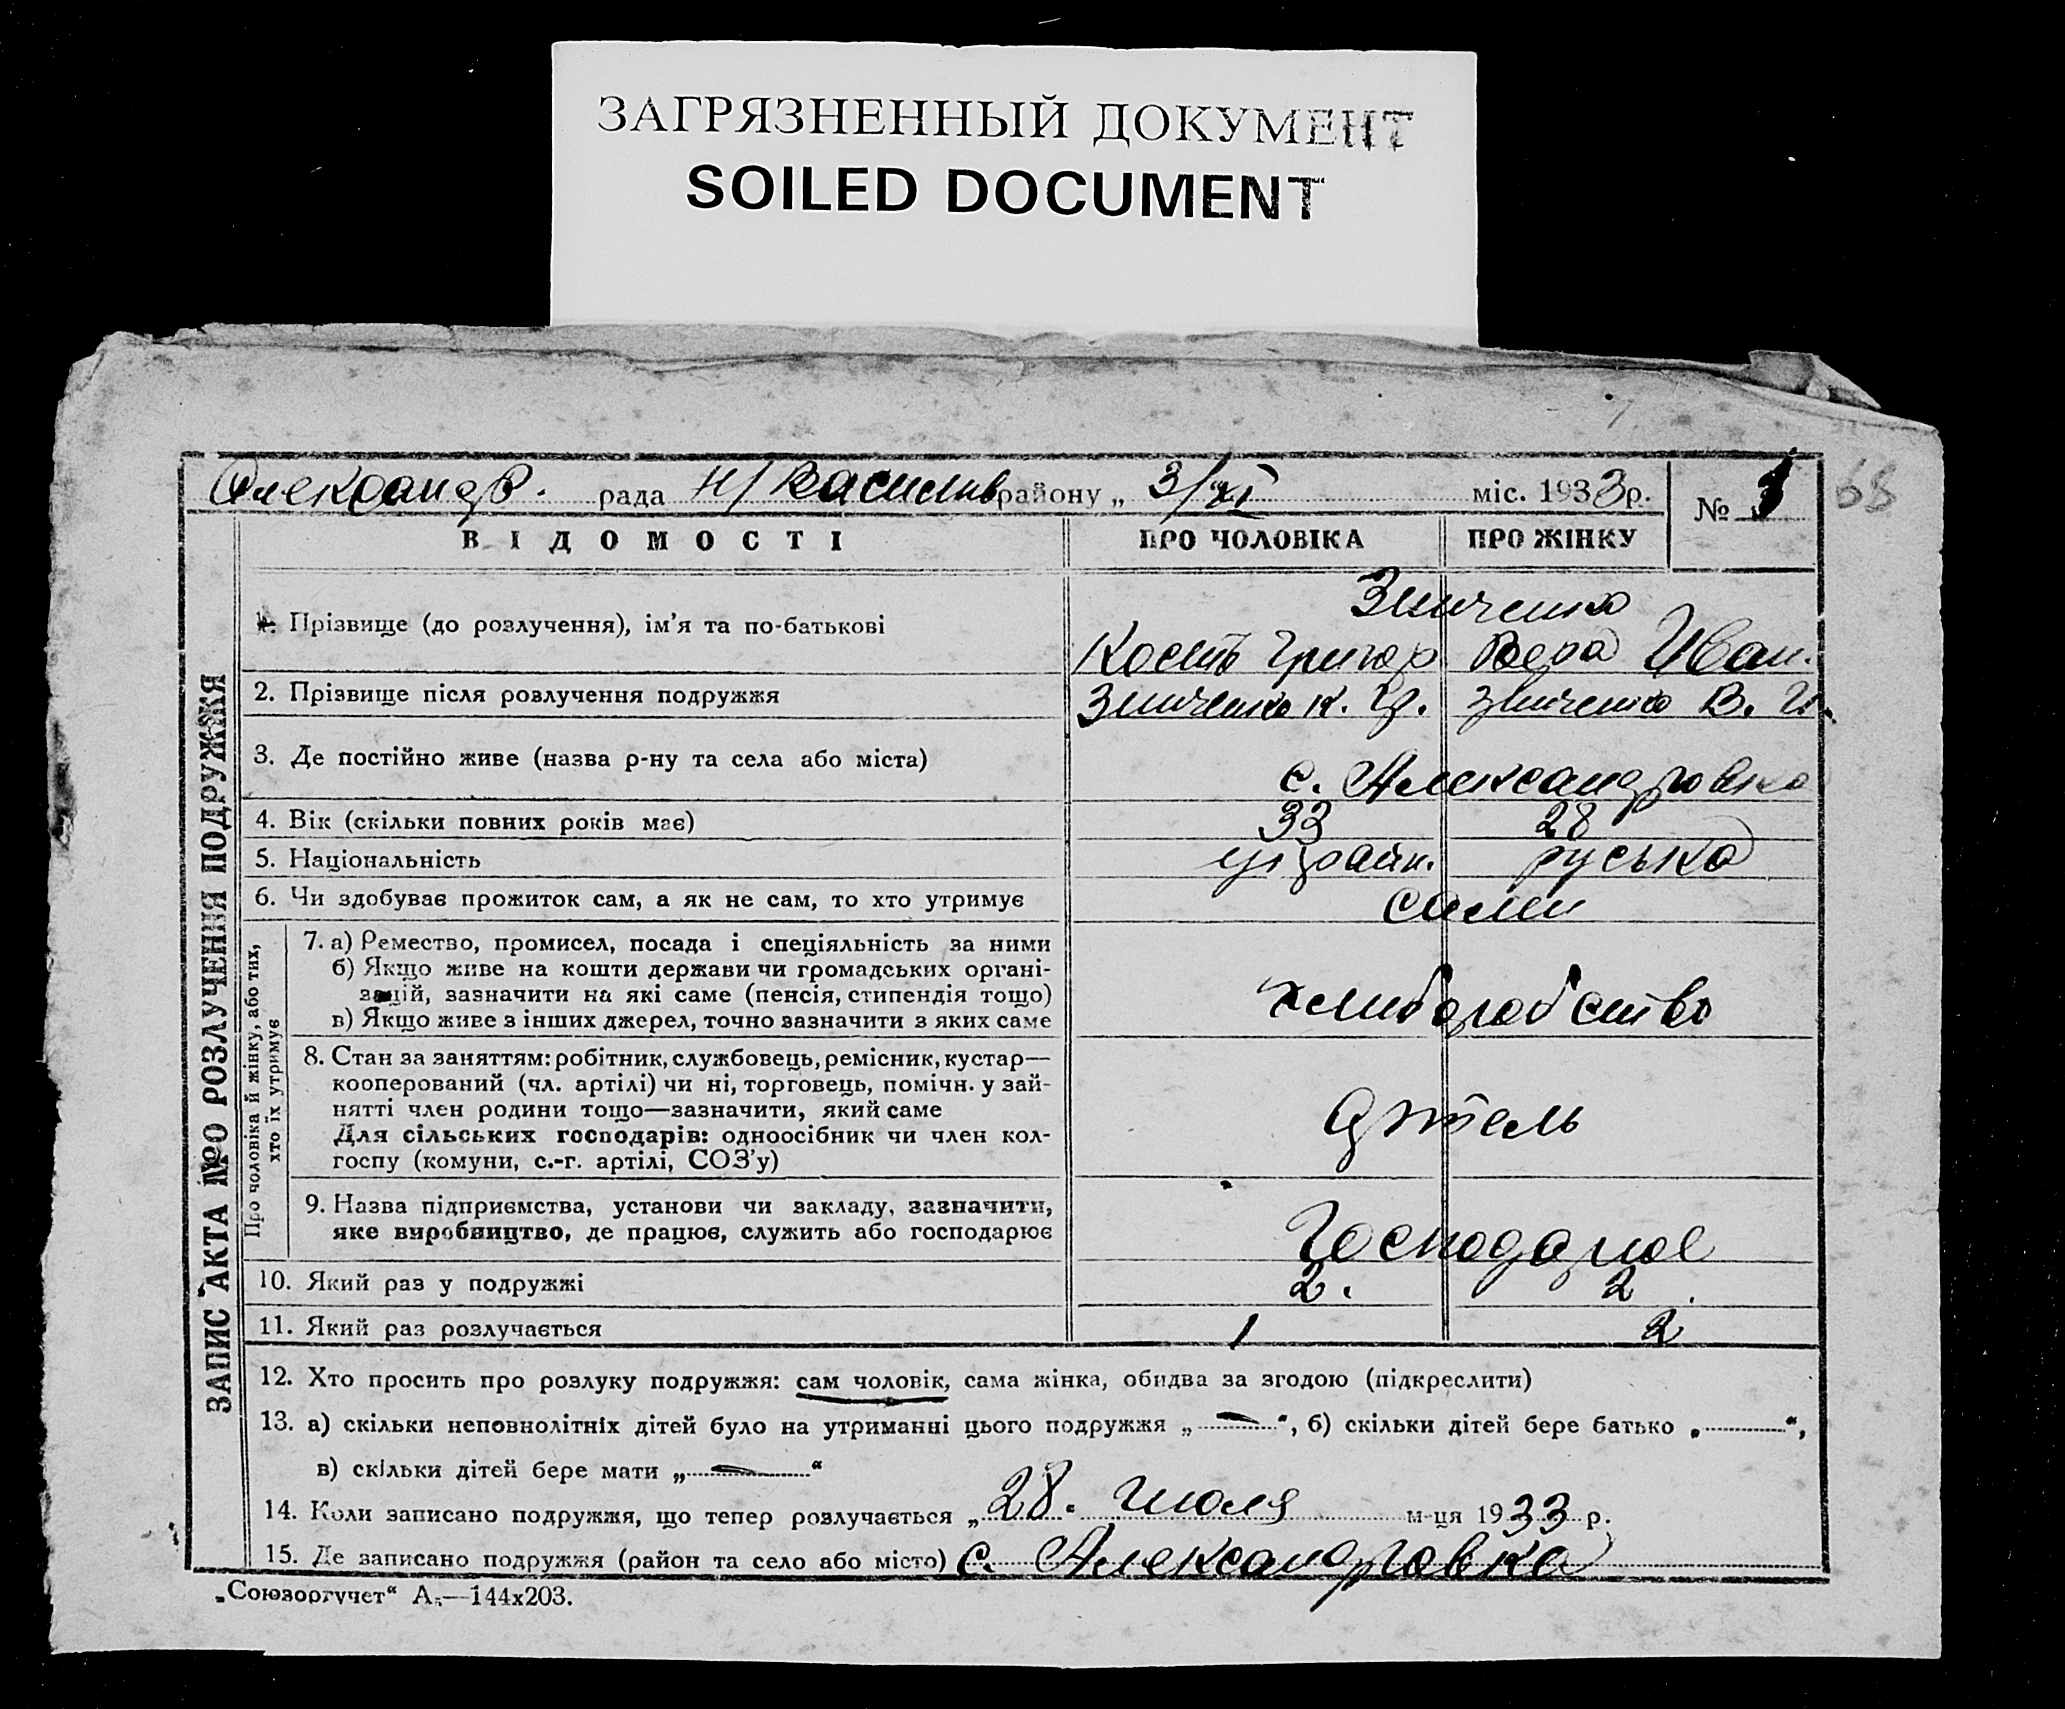 ЗАГРЯЗНЕННЫЙ ДОКУМЕНТ
SOILED DOCUMENT
Олександр. рада Н/Василів району „ 3/XI міс. 1933р. № 63
ВІДОМОСТІ ПРО ЧОЛОВІКА ПРО ЖІНКУ
Зинченко
1. Прізвище (до розлучення), ім'я та по-батькові Кость Григор Вера Иван.
2. Прізвище після розлучення подружжя Зинченко К. Гр. Зинченко В. И.
3. Де постійно живе (назва р-ну та села або міста) с. Александровка
4. Вік (скільки повних років має) 33 28
5. Національність україн. руська
6. Чи здобуває прожиток сам, а як не сам, то хто утримує сами
Про чоловіка й жінку, або тих, хто їх утримує
7. а) Ремество, промисел, посада і спеціяльність за ними
б) Якщо живе на кошти держави чи громадських органі-
зацій, зазначити на які саме (пенсія, стипендія тощо) хлиборобство
в) Якщо живе з інших джерел, точно зазначити з яких саме
8. Стан за заняттям: робітник, службовець, ремісник, кустар—
кооперований (чл. артілі) чи ні, торговець, помічн. у зай-
нятті член родини тощо—зазначити, який саме
Для сільських господарів: одноосібник чи член кол-
госпу (комуни, с.-г. артілі, СОЗ'у)
9. Назва підприємства, установи чи закладу, зазначити,
яке виробництво, де працює, служить або господарює Господарює
10. Який раз у подружжі 2. 2
11. Який раз розлучається 1 2
12. Хто просить про розлуку подружжя: сам чоловік, сама жінка, обидва за згодою (підкреслити)
13. а) скільки неповнолітніх дітей було на утриманні цього подружжя „ — “, б) скільки дітей бере батько „ “,
в) скільки дітей бере мати „ — “
14. Коли записано подружжя, що тепер розлучається „ 28. Июля м-ця 1933 р.
15. Де записано подружжя (район та село або місто) с. Александровка
„Союзоргучет“ А5—144х203.
ЗАПИС АКТА ПРО РОЗЛУЧЕННЯ ПОДРУЖЖЯ